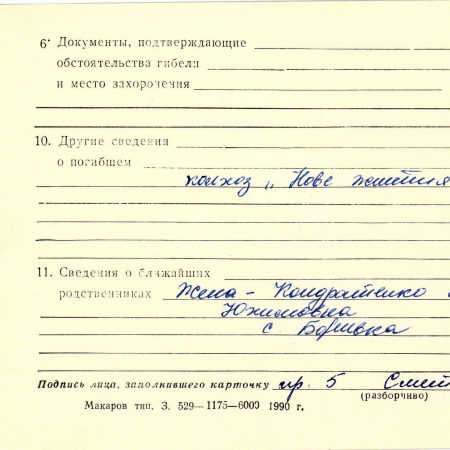 6· Документы, подтверждающие
обстоятельства гибели
и место захоронения
10. Другие сведения
о погибшем
колхоз „ Нове життя
11. Сведения о ближайших
родственниках Жена - Кондратенко
Юхимовна
с. Боривка
Подпись лица, заполнившего карточку пр. 5
(разборчиво)
Макаров тип. З. 529—1175—6000 1990 г.